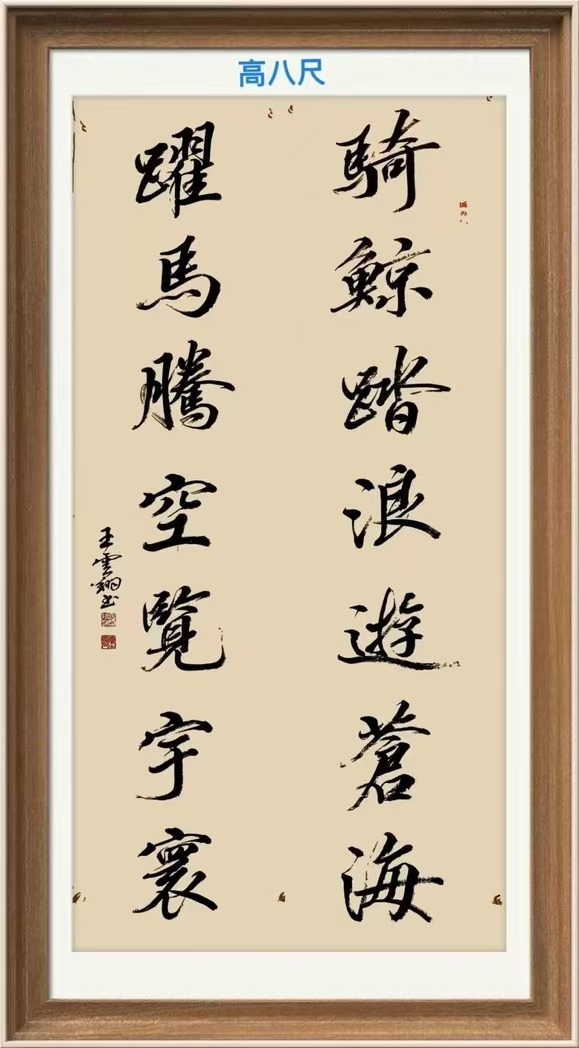 高八尺
騎鯨踏浪遊蒼海
躍馬騰空覽宇寰
王雲翔書